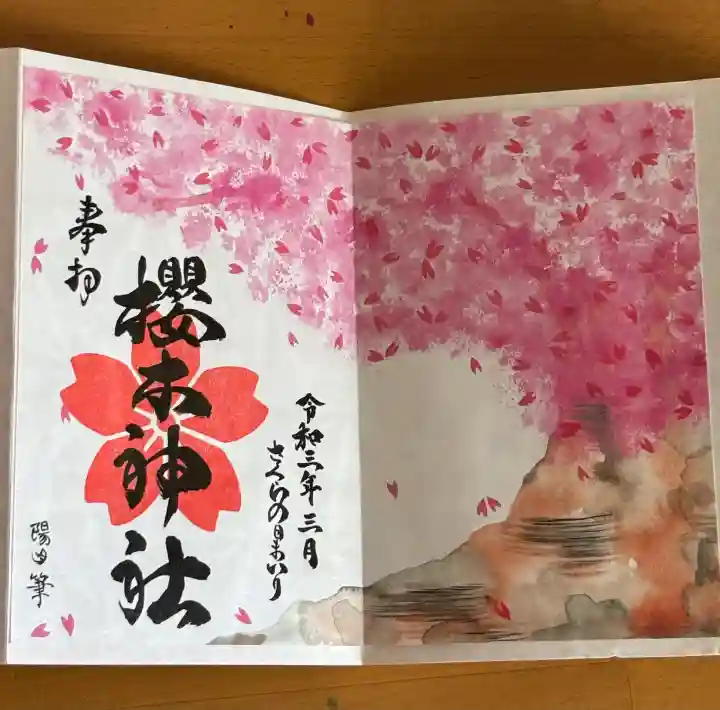 令和三年三月
さくらの日まいり
櫻木神社
奉拝
陽山筆